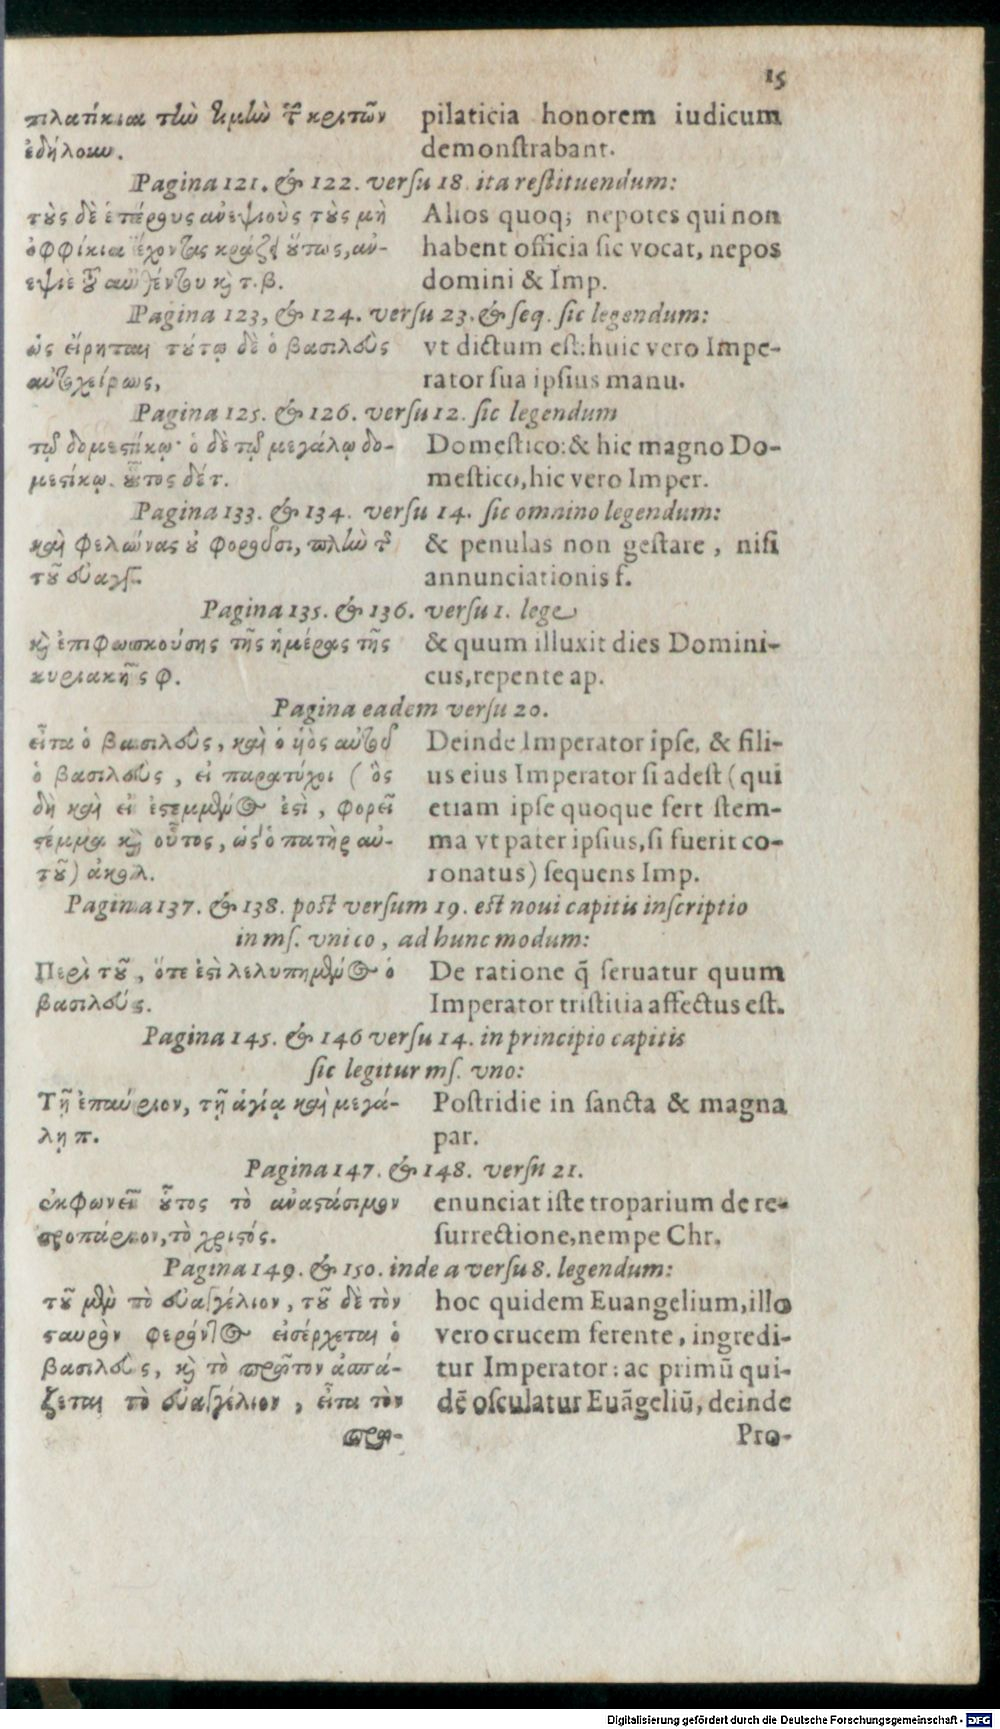 15
πιλατίκια τὴν τιμὴν τῶν κριτῶν
ἐδήλουν.
pilaticia honorem iudicum
demonſtrabant.
Pagina 121. & 122. verſu 18. ita reſtituendum:
τοὺς δὲ ἑτέρους ἀνεψιοὺς τοὺς μὴ
ὀφφίκια ἔχοντας κράζει οὕτως, ἀν-
εψιὲ τοῦ αὐθέντου καὶ τ. β.
Alios quoq; nepotes qui non
habent officia ſic vocat, nepos
domini & Imp.
Pagina 123, & 124. verſu 23. & ſeq. ſic legendum:
ὡς εἴρηται τούτῳ δὲ ὁ βασιλεὺς
αὐτοχείρως,
vt dictum eſt: huic vero Impe-
rator ſua ipſius manu.
Pagina 125. & 126. verſu 12. ſic legendum
τῷ δομεστίκῳ· ὁ δὲ τῷ μεγάλῳ δο-
μεστίκῳ. οὗτος δέ τ.
Domeſtico: & hic magno Do-
meſtico, hic vero Imper.
Pagina 133. & 134. verſu 14. ſic omnino legendum:
καὶ φελώνας οὐ φοροῦσι, πλὴν τ
τοῦ εὐαγγ.
& penulas non geſtare, niſi
annunciationis f.
Pagina 135. & 136. verſu 1. lege
καὶ ἐπιφωσκούσης τῆς ἡμέρας τῆς
κυριακῆς φ.
& quum illuxit dies Domini-
cus, repente ap.
Pagina eadem verſu 20.
εἶτα ὁ βασιλεὺς, καὶ ὁ ὑὸς αὐτοῦ
ὁ βασιλεὺς, εἰ παρατύχοι (ὃς
δὴ καὶ εἰ ἐστεμμένος ἐστὶ, φορεῖ
στέμμα καὶ οὗτος, ὡς ὁ πατὴρ αὐ-
τοῦ) ἀκολ.
Deinde Imperator ipſe, & fili-
us eius Imperator ſi adeſt (qui
etiam ipſe quoque fert ſtem-
ma vt pater ipſius, ſi fuerit co-
ronatus) ſequens Imp.
Pagina 137. & 138. poſt verſum 19. eſt noui capitis inſcriptio
in mſ. vnico, ad hunc modum:
Περὶ τοῦ, ὅτε ἐστὶ λελυπημένος ὁ
βασιλεύς.
De ratione q̃ ſeruatur quum
Imperator triſtitia affectus eſt.
Pagina 145. & 146 verſu 14. in principio capitis
ſic legitur mſ. vno:
Τῇ ἐπαύριον, τῇ ἁγίᾳ καὶ μεγά-
λῃ π.
Poſtridie in ſancta & magna
par.
Pagina 147. & 148. verſu 21.
ἐκφωνεῖ οὗτος τὸ ἀναστάσιμον
τροπάριον, τὸ χριστός.
enunciat iſte troparium de re-
ſurrectione, nempe Chr.
Pagina 149. & 150. inde a verſu 8. legendum:
τοῦ μὲν τὸ εὐαγγέλιον, τοῦ δὲ τὸν
σταυρὸν φέροντος εἰσέρχεται ὁ
βασιλεὺς, καὶ τὸ πρῶτον ἀσπά-
ζεται τὸ εὐαγγέλιον, εἶτα τὸν
προ-
hoc quidem Euangelium, illo
vero crucem ferente, ingredi-
tur Imperator: ac primũ qui-
dẽ oſculatur Euãgeliũ, deinde
Pro-
Digitalisierung gefördert durch die Deutsche Forschungsgemeinschaft - DFG